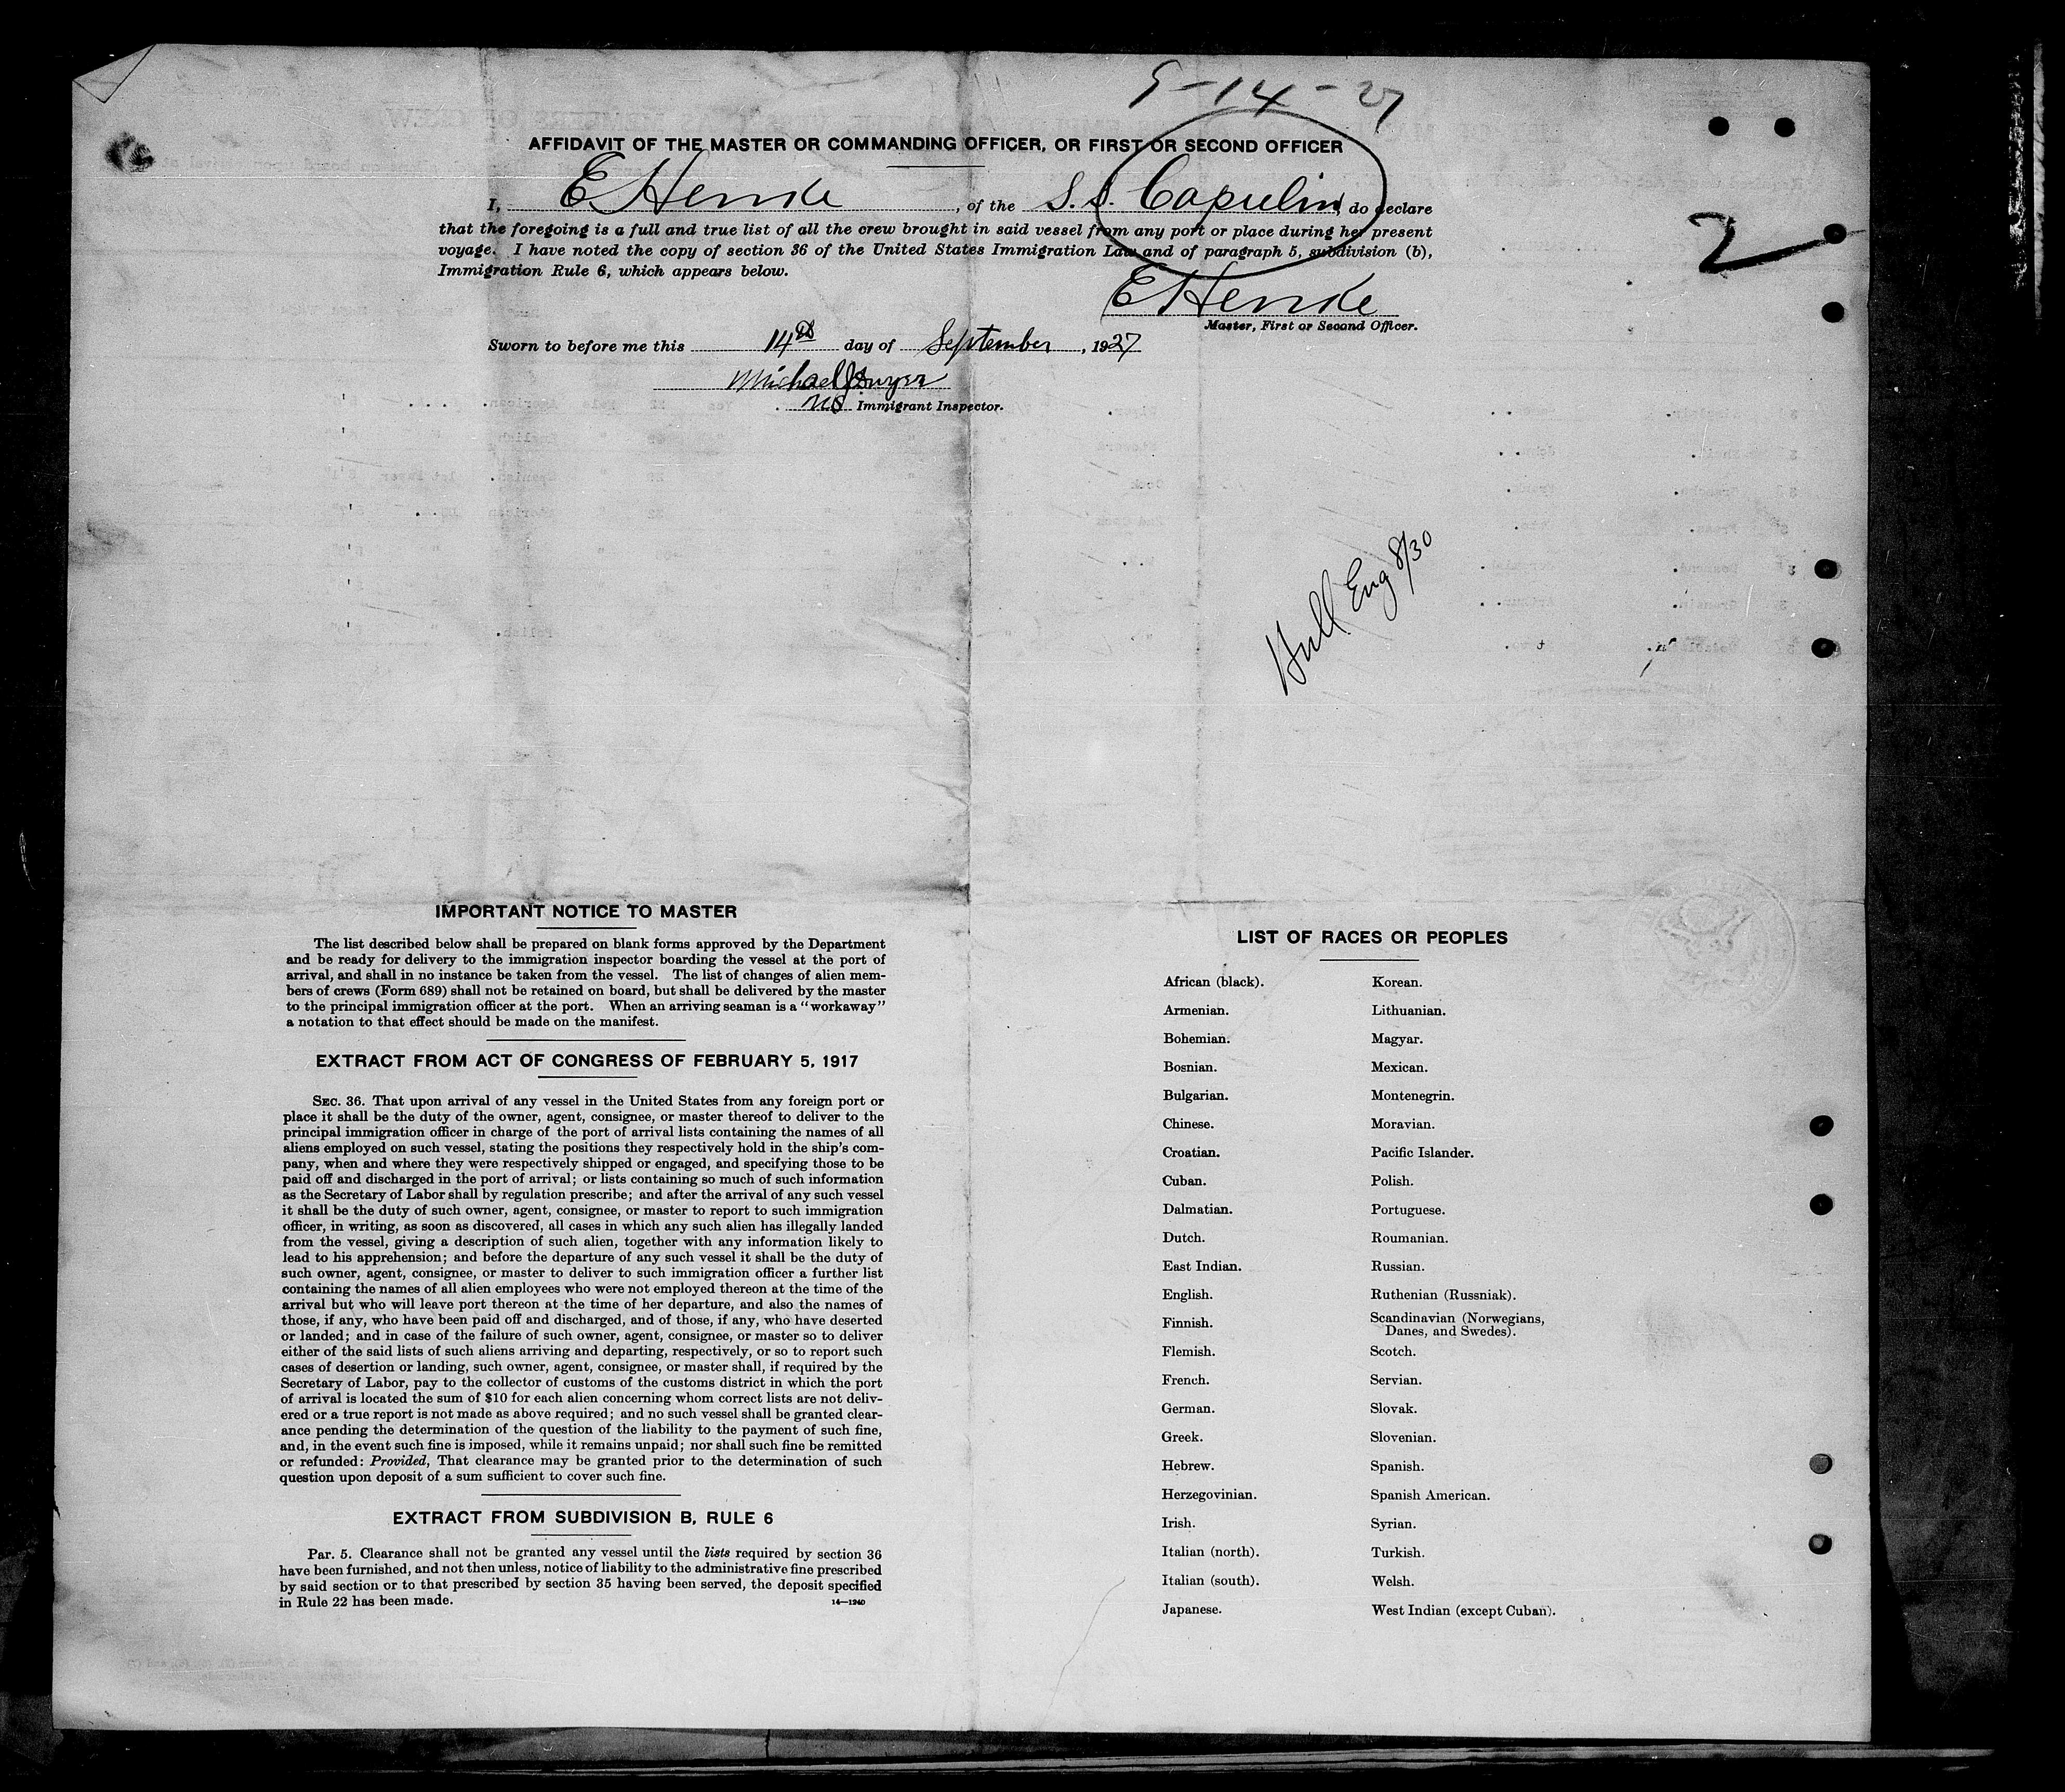 9-14-27
AFFIDAVIT OF THE MASTER OR COMMANDING OFFICER, OR FIRST OR SECOND OFFICER
I, E Henke, of the S.S. Capulin, do declare
that the foregoing is a full and true list of all the crew brought in said vessel from any port or place during her present
voyage. I have noted the copy of section 36 of the United States Immigration Law and of paragraph 5, subdivision (b),
Immigration Rule 6, which appears below.
2
E Henke
Master, First or Second Officer.
Sworn to before me this 14th day of September, 1927
Michael
Immigrant Inspector.
Hull Eng 8/30
IMPORTANT NOTICE TO MASTER
The list described below shall be prepared on blank forms approved by the Department
and be ready for delivery to the immigration inspector boarding the vessel at the port of
arrival, and shall in no instance be taken from the vessel. The list of changes of alien mem-
bers of crews (Form 689) shall not be retained on board, but shall be delivered by the master
to the principal immigration officer at the port. When an arriving seaman is a "workaway"
a notation to that effect should be made on the manifest.
EXTRACT FROM ACT OF CONGRESS OF FEBRUARY 5, 1917
SEC. 36. That upon arrival of any vessel in the United States from any foreign port or
place it shall be the duty of the owner, agent, consignee, or master thereof to deliver to the
principal immigration officer in charge of the port of arrival lists containing the names of all
aliens employed on such vessel, stating the positions they respectively hold in the ship's com-
pany, when and where they were respectively shipped or engaged, and specifying those to be
paid off and discharged in the port of arrival; or lists containing so much of such information
as the Secretary of Labor shall by regulation prescribe; and after the arrival of any such vessel
it shall be the duty of such owner, agent, consignee, or master to report to such immigration
officer, in writing, as soon as discovered, all cases in which any such alien has illegally landed
from the vessel, giving a description of such alien, together with any information likely to
lead to his apprehension; and before the departure of any such vessel it shall be the duty of
such owner, agent, consignee, or master to deliver to such immigration officer a further list
containing the names of all alien employees who were not employed thereon at the time of the
arrival but who will leave port thereon at the time of her departure, and also the names of
those, if any, who have been paid off and discharged, and of those, if any, who have deserted
or landed; and in case of the failure of such owner, agent, consignee, or master so to deliver
either of the said lists of such aliens arriving and departing, respectively, or so to report such
cases of desertion or landing, such owner, agent, consignee, or master shall, if required by the
Secretary of Labor, pay to the collector of customs of the customs district in which the port
of arrival is located the sum of $10 for each alien concerning whom correct lists are not deliv-
ered or a true report is not made as above required; and no such vessel shall be granted clear-
ance pending the determination of the question of the liability to the payment of such fine,
and, in the event such fine is imposed, while it remains unpaid; nor shall such fine be remitted
or refunded: Provided, That clearance may be granted prior to the determination of such
question upon deposit of a sum sufficient to cover such fine.
EXTRACT FROM SUBDIVISION B, RULE 6
Par. 5. Clearance shall not be granted any vessel until the lists required by section 36
have been furnished, and not then unless, notice of liability to the administrative fine prescribed
by said section or to that prescribed by section 35 having been served, the deposit specified
in Rule 22 has been made.
14—1240
LIST OF RACES OR PEOPLES
African (black).
Armenian.
Bohemian.
Bosnian.
Bulgarian.
Chinese.
Croatian.
Cuban.
Dalmatian.
Dutch.
East Indian.
English.
Finnish.
Flemish.
French.
German.
Greek.
Hebrew.
Herzegovinian.
Irish.
Italian (north).
Italian (south).
Japanese.
Korean.
Lithuanian.
Magyar.
Mexican.
Montenegrin.
Moravian.
Pacific Islander.
Polish.
Portuguese.
Roumanian.
Russian.
Ruthenian (Russniak).
Scandinavian (Norwegians,
Danes, and Swedes).
Scotch.
Servian.
Slovak.
Slovenian.
Spanish.
Spanish American.
Syrian.
Turkish.
Welsh.
West Indian (except Cuban).